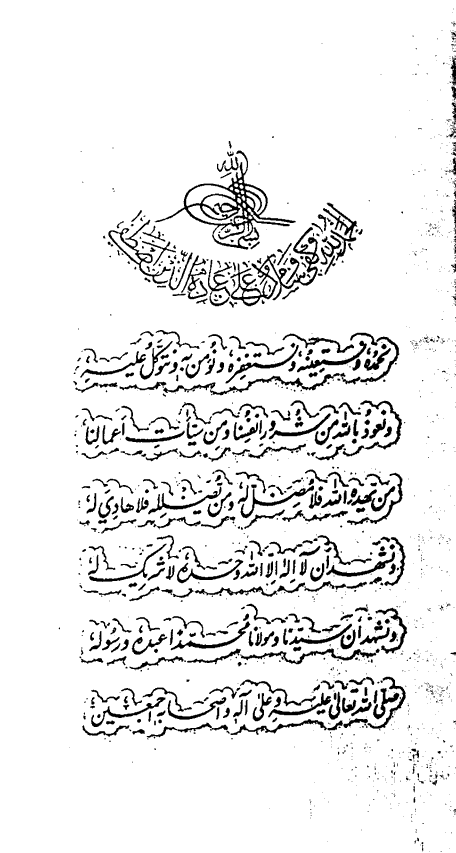 الحمد لله وكفى وسلام على عباده الذين اصطفى
نحمده ونستعينه ونستغفره ونؤمن به ونتوكل عليه
ونعوذ بالله من شرور انفسنا ومن سيّأت اعمالنا
من يهده الله فلا مضل له ومن يضلله فلا هادي له
ونشهد أن لا اله الا الله وحده لا شريك له
ونشهد أن سيّدنا ومولانا محمّدا عبده ورسوله
صلى الله تعالى عليه وعلى آله واصحابه اجمعين